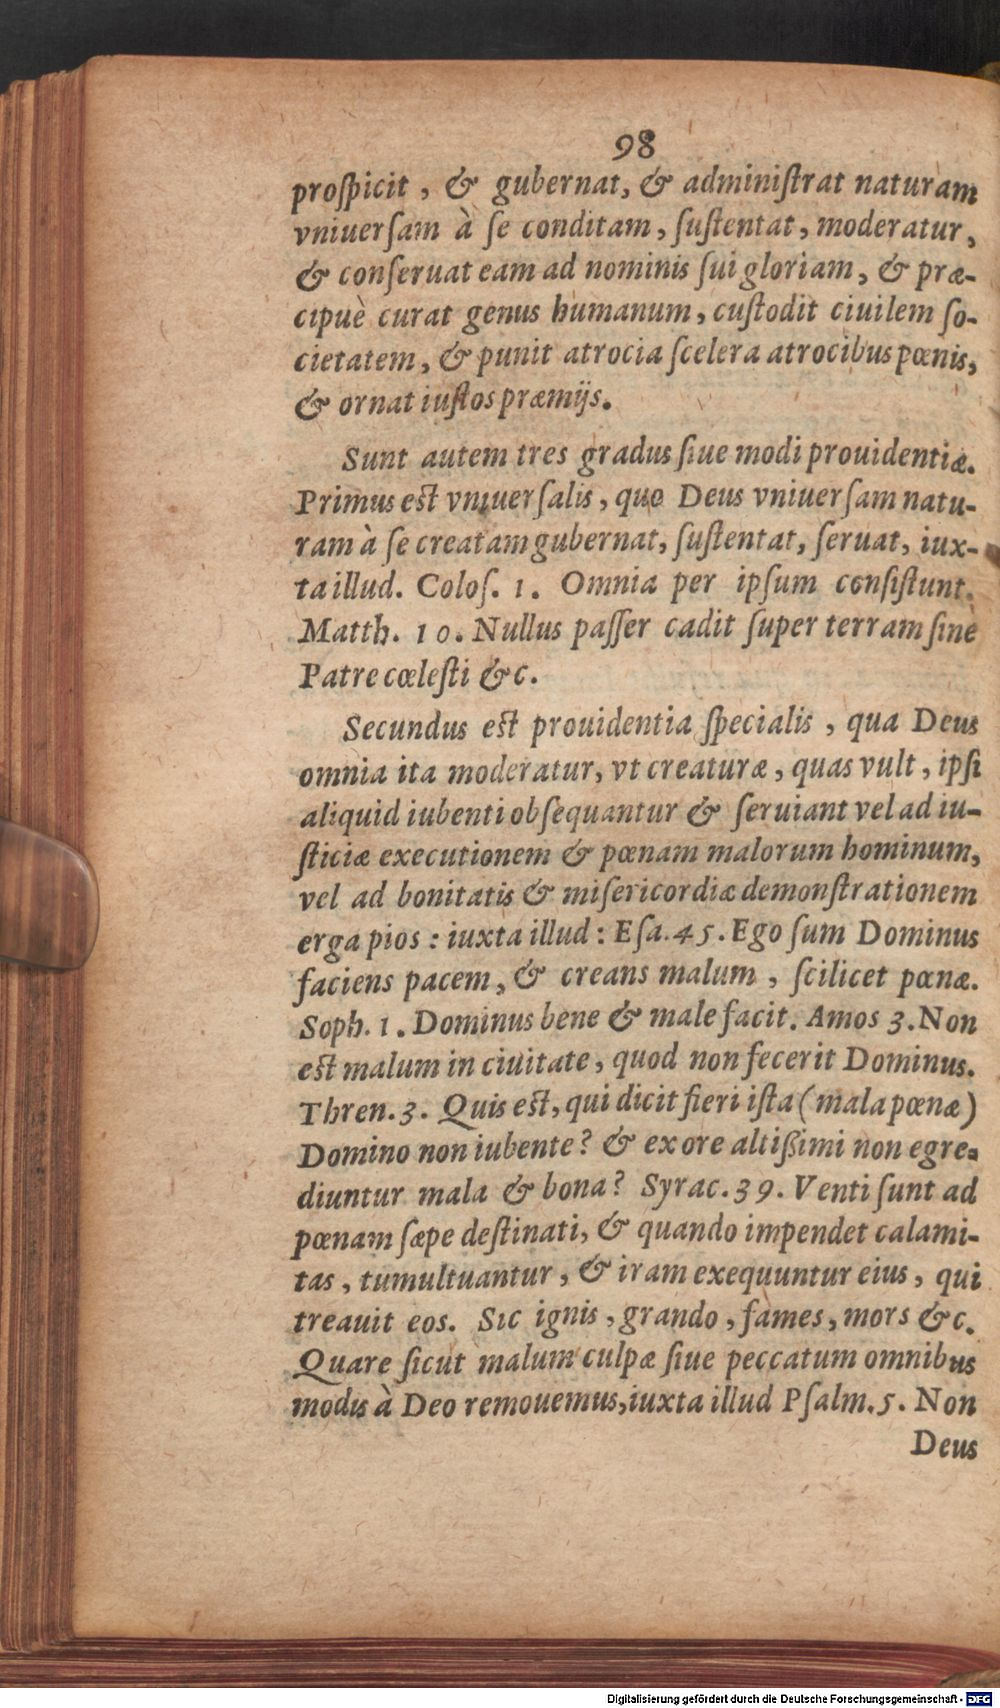 98
proſpicit, & gubernat, & adminiſtrat naturam
vniuerſam à ſe conditam, ſuſtentat, moderatur,
& conſeruat eam ad nominis ſui gloriam, & præ-
cipuè curat genus humanum, cuſtodit ciuilem ſo-
cietatem, & punit atrocia ſcelera atrocibus pœnis,
& ornat iuſtos præmijs.
Sunt autem tres gradus ſiue modi prouidentiæ.
Primus eſt vniuerſalis, quo Deus vniuerſam natu-
ram à ſe creatam gubernat, ſuſtentat, ſeruat, iux-
ta illud. Coloſ. 1. Omnia per ipſum conſiſtunt.
Matth. 10. Nullus paſſer cadit ſuper terram ſine
Patre cœleſti &c.
Secundus eſt prouidentia ſpecialis, qua Deus
omnia ita moderatur, vt creaturæ, quas vult, ipſi
aliquid iubenti obſequantur & ſeruiant vel ad iu-
ſticiæ executionem & pœnam malorum hominum,
vel ad bonitatis & miſericordiæ demonſtrationem
erga pios: iuxta illud: Eſa. 45. Ego ſum Dominus
faciens pacem, & creans malum, ſcilicet pœnæ.
Soph. 1. Dominus bene & male facit. Amos 3. Non
eſt malum in ciuitate, quod non fecerit Dominus.
Thren. 3. Quis eſt, qui dicit fieri iſta (mala pœnæ)
Domino non iubente? & ex ore altißimi non egre-
diuntur mala & bona? Syrac. 39. Venti ſunt ad
pœnam ſæpe deſtinati, & quando impendet calami-
tas, tumultuantur, & iram exequuntur eius, qui
treauit eos. Sic ignis, grando, fames, mors &c.
Quare ſicut malum culpæ ſiue peccatum omnibus
modis à Deo remouemus, iuxta illud Pſalm. 5. Non
Deus
Digitalisierung gefördert durch die Deutsche Forschungsgemeinschaft - DFG